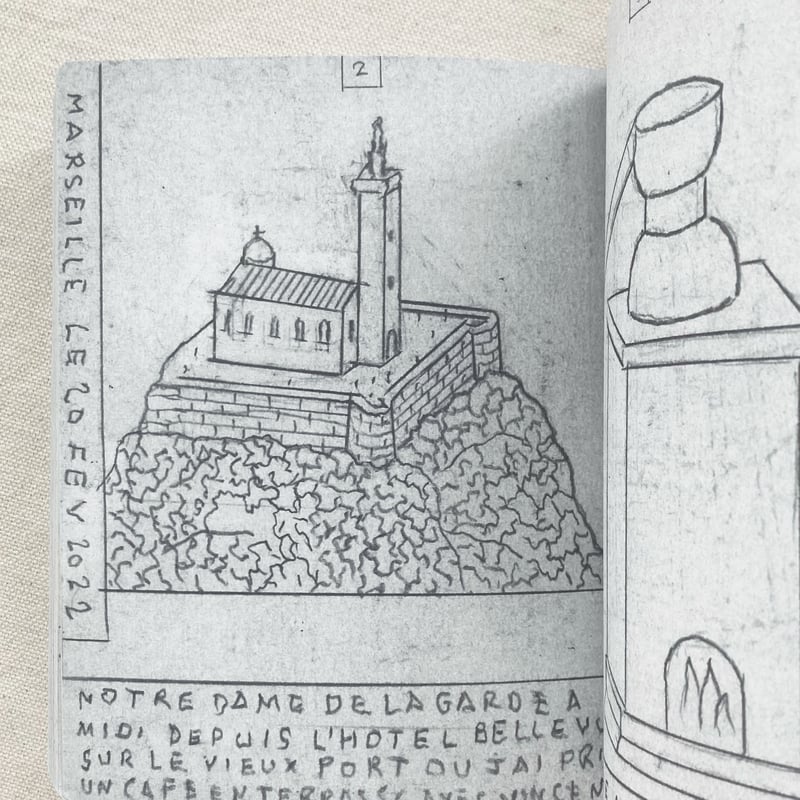 2
MARSEILLE LE 20 FEV 2022
NOTRE DAME DE LA GARDE A
MIDI DEPUIS L'HOTEL BELLEVU
SUR LE VIEUX PORT OU J'AI PRI
UN CAFE EN TERRASSE AVEC VINCEN